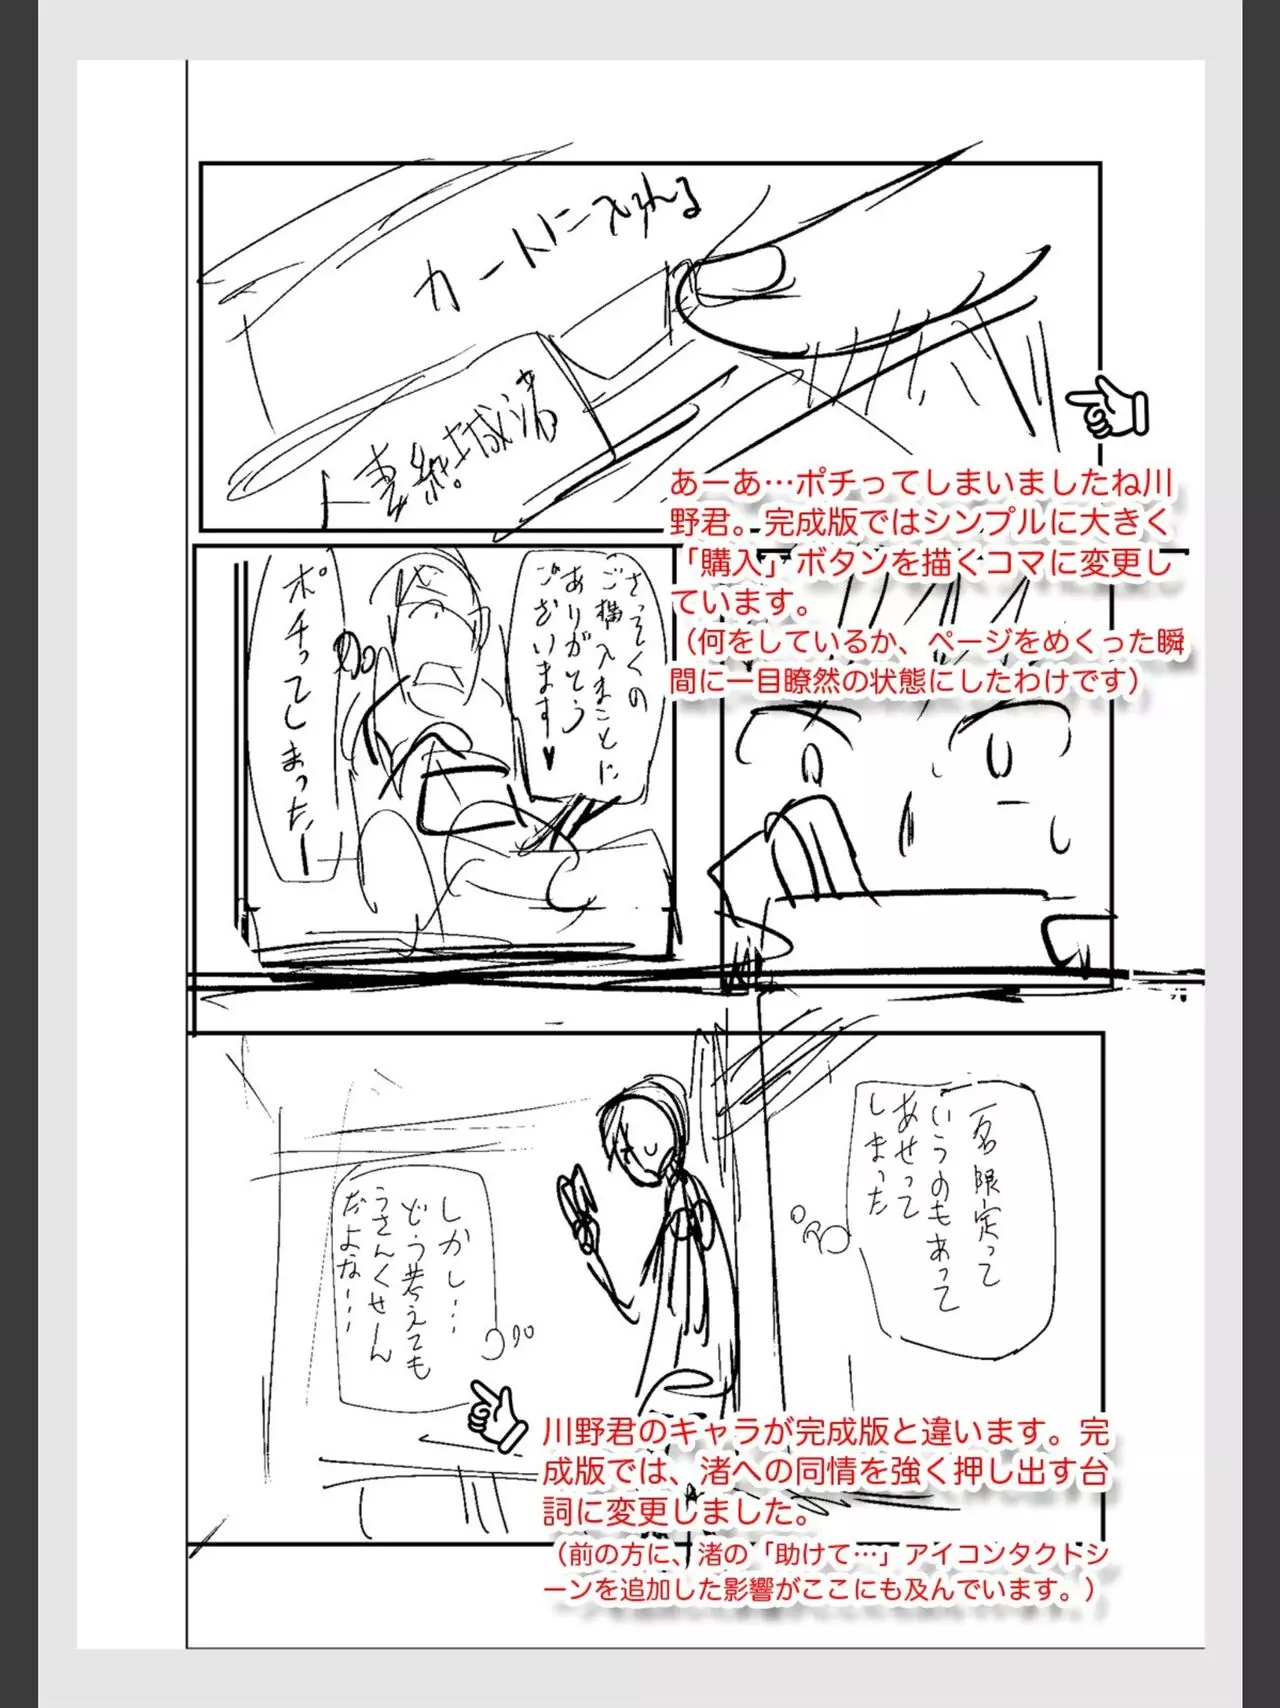 カートに入れる
あーあ…ポチってしまいましたね川
野君。完成版ではシンプルに大きく
「購入」ボタンを描くコマに変更し
ています。
（何をしているか、ページをめくった瞬
間に一目瞭然の状態にしたわけです）
さっそくの
ご購入まことに
ありがとう
ございます♥
ポチってしまった
一名限定って
いうのもあって
あせって
しまった
しかし…
どう考えても
うさんくせん
だよな…
川野君のキャラが完成版と違います。完
成版では、渚への同情を強く押し出す台
詞に変更しました。
（前の方に、渚の「助けて…」アイコンタクトシ
ーンを追加した影響がここにも及んでいます。）